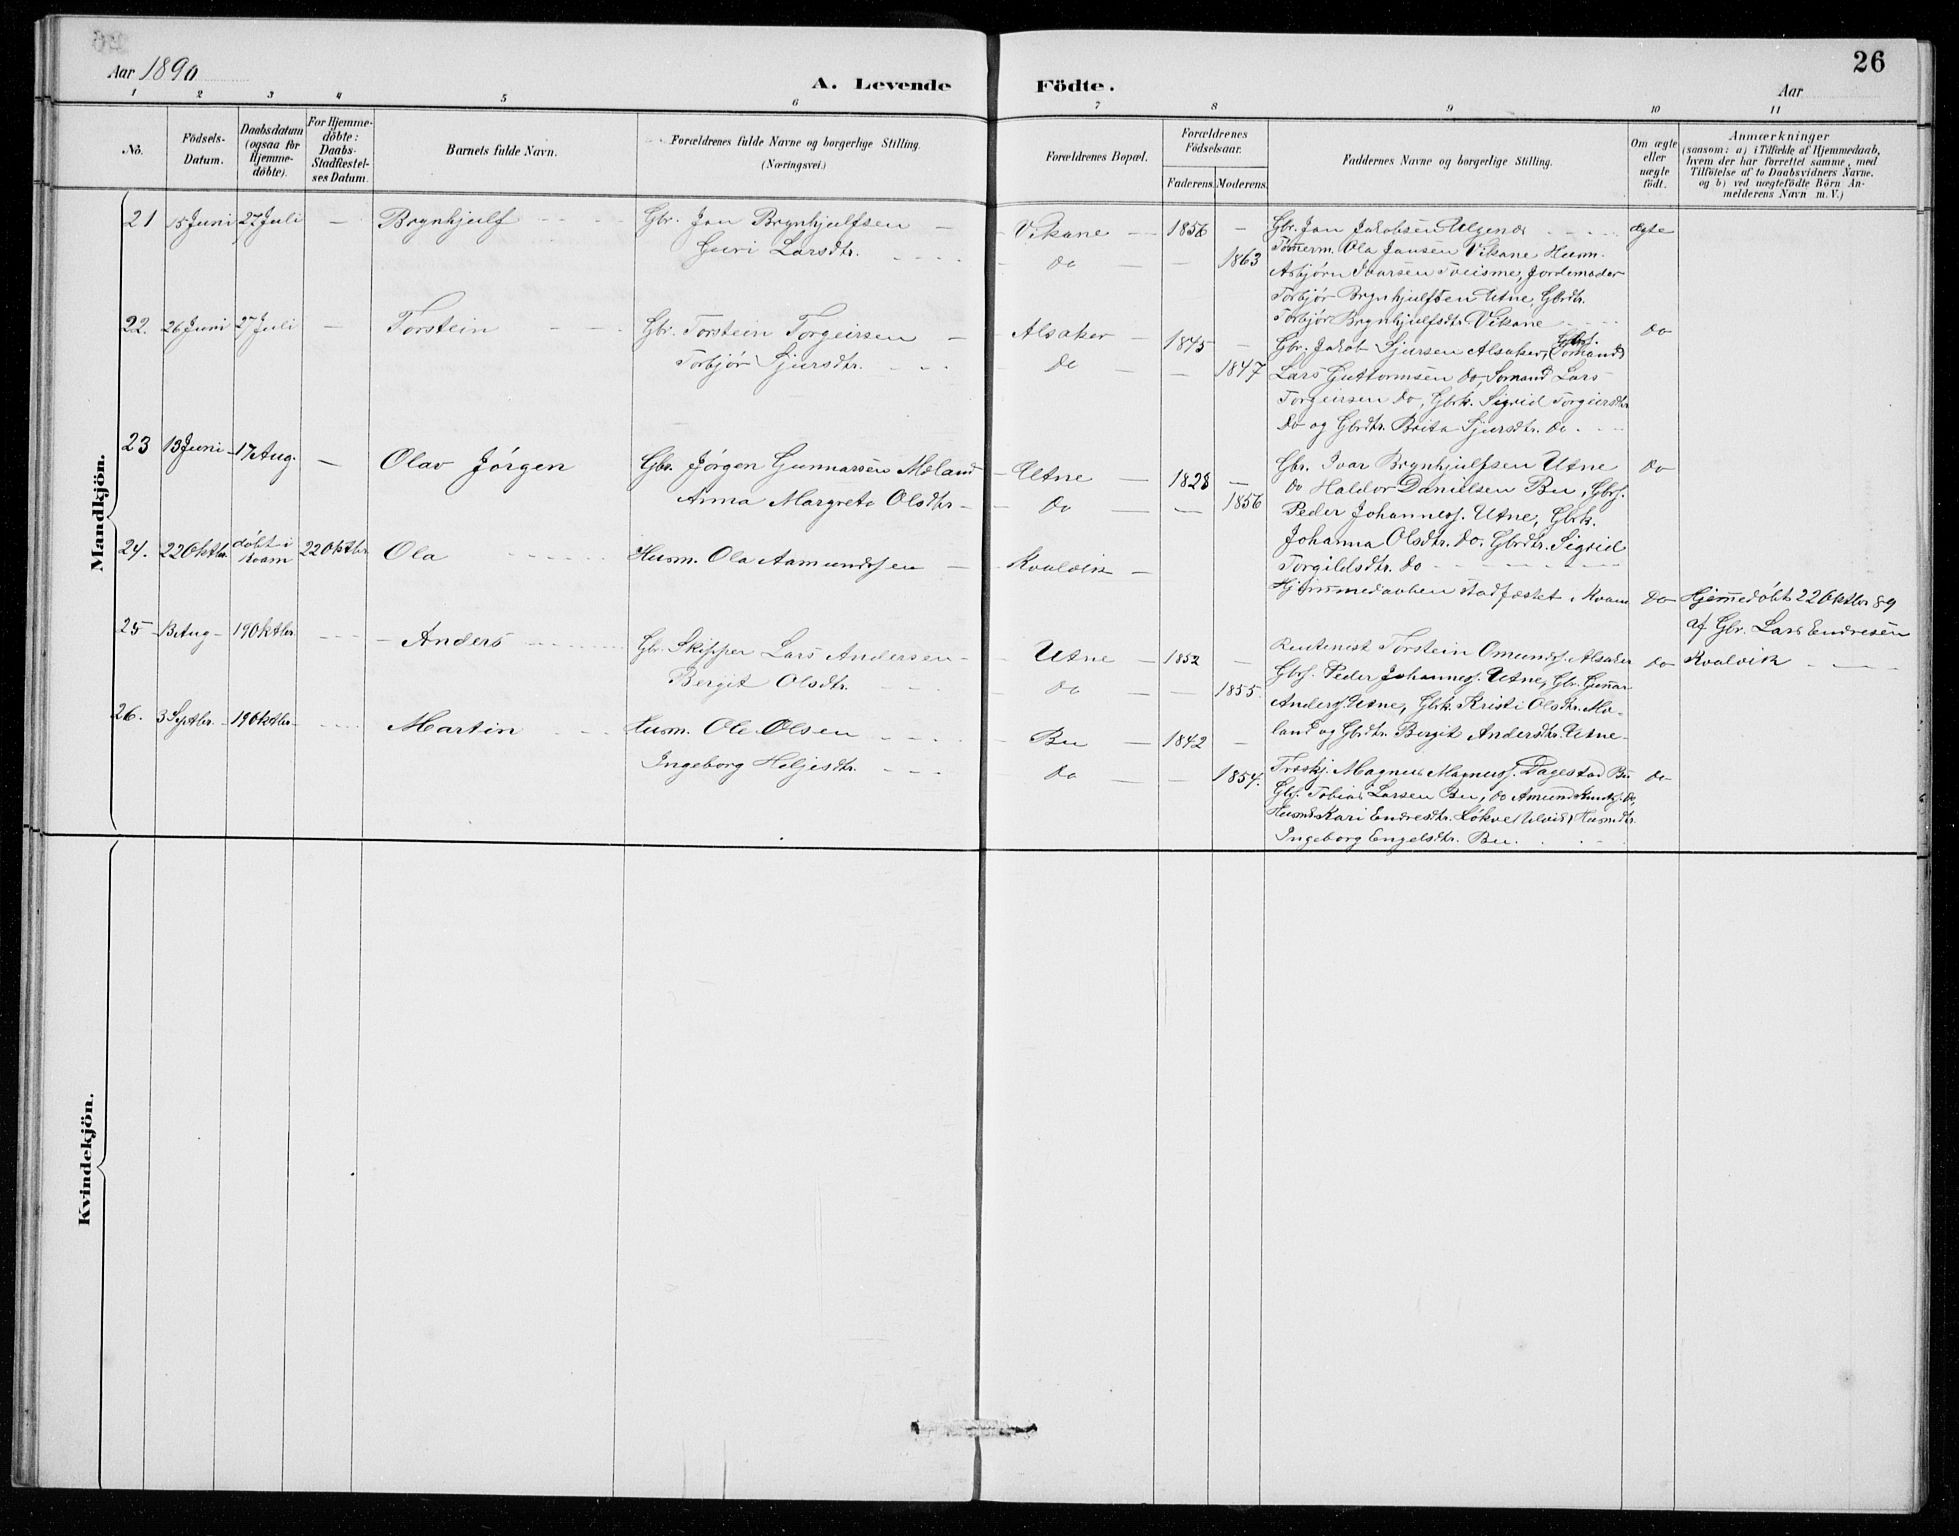 26
Aar 1890
A. Levende Födte.
Aar
1 2 3 4 5 6 7 8 9 10 11
No.
Födsels-
Datum.
Daabsdatum
(ogsaa for
Hjemme-
döbte).
For Hjemme-
döbte:
Daabs-
Stadfæstel-
ses Datum.
Barnets fulde Navn.
Forældrenes fulde Navne og borgerlige Stilling.
(Næringsvei.)
Forældrenes Bopæl.
Forældrenes
Födselsaar.
Faderens. Moderens.
Faddernes Navne og borgerlige Stilling.
Om ægte
eller
uægte
født.
Anmærkninger
(saasom: a) i Tilfælde af Hjemmedaab,
hvem der har forrettet samme, med
Tilföielse af to Daabsvidners Navne.
og b) ved uægtefödte Börn An-
melderens Navn m. V.)
Mandkjön.
21 15 Juni 27 Juli — Brynhjulf Gbr. Jon Brynhjulfsen — Vikane — 1856 —
Guri Larsdtr. Do — — 1863
Gbr. Jon Jakobsen ægte
Tømerm. Ola Jonsen Vikane Husm.
Asbjørn Ivarsen Tveisme, Jordemoder
Torbjør Brynhjulfsen Utne, Gbrdtr.
Torbjør Brynhjulfsdtr. Vikane
22. 26 Juni 27 Juli — Torstein Gbr. Torstein Torgeirsen — Alsaker — 1845 —
Torbjør Sjursdtr. Do — — 1847
Gbr. Jakob Sjursen Alsaker, Gbrs. Do
Lars Guttormsen Do, Sømand Lars
Torgeirsen Do, Gbrk. Sigrid Torgeirsdtr.
Do og Gbrdtr. Brita Sjursdtr. Do.
23 13 Juni 17 Aug. — Olav Jörgen Gbr. Jörgen Gunnarsen Mæland — Utne — 1828 —
Anna Margreta Olsdtr. — Do — — 1856
Gbr. Ivar Brynhjulfsen Utne Do
Do Haldor Danielsen Bu, Gbrs.
Peder Johanness. Utne, Gbrk.
Johanna Olsdtr. Do, Gbrdtr. Sigrid
Torgilsdtr. Do
24. 22 Oktbr. döbt i Kvam 22 Oktbr. Ola Husm. Ola Aamundsen — Kvalvik —
Hjemmedaaben stadfæstet Kvam Do Hjemmedöbt 22 Oktbr 89
af Gbr. Lars Endresen
Kvalvik
25 Aug — 19 Oktbr. Anders Gbr. Skipper Lars Andersen — Utne — 1852 —
Bergit Olsdtr. Do — — 1855
Rentenist Torstein Omunds. Alsaker Do
Gbrs. Peder Johanness. Utne, Gbr. Gunnar
Anders. Utne, Gbrk. Kristi Olsdtr. Mæ-
land og Gbrdtr. Bergit Andersdtr. Utne —
26. 3 Septbr. — 19 Oktbr. Martin Husm. Ole Olsen Bu — 1842 —
Ingeborg Heljesdtr. Do — — 1854.
Træskj. Magnus Magnuss. Dagestad Bu Do
Gbs. Tobias Larsen Bu, Do Amund Do,
Kari Endresdtr. Løkve Ulvik, Husmdtr.
Ingeborg Engelsdtr. Bu.
Kvindekjön.